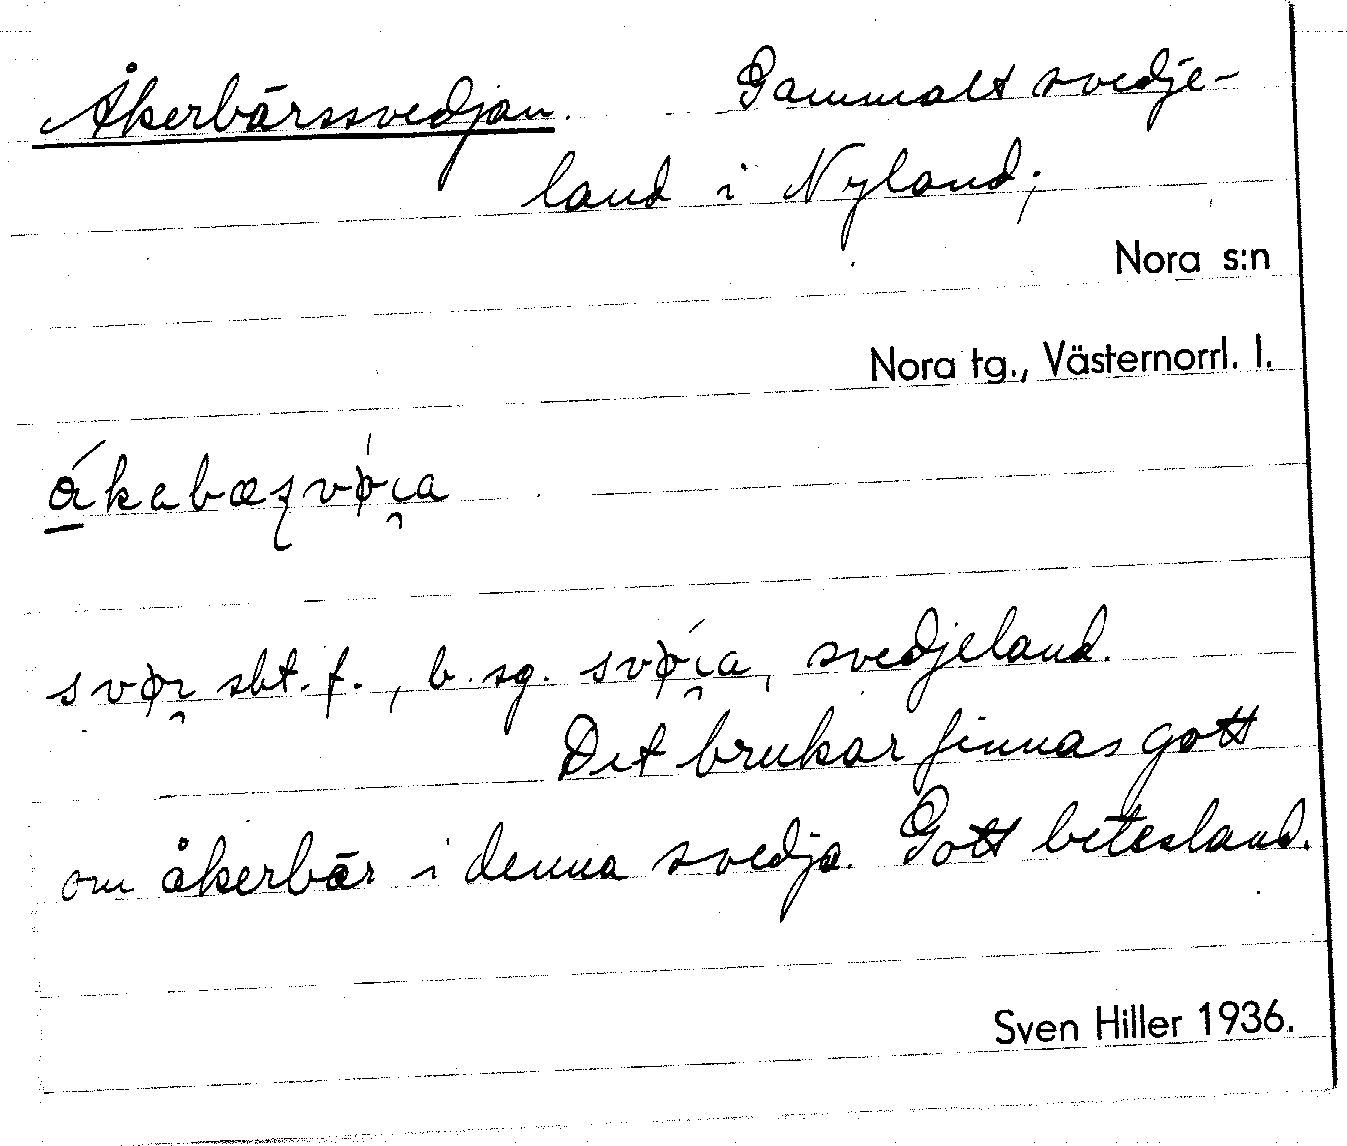 Åkerbärssvedjan. Gammalt svedje-
land i Nyland;
Nora s:n
Nora tg., Västernorrl. l.
sbt. f., b. sg. , svedjeland.
Det brukar finnas gott
om åkerbär i denna svedja. Gott betesland.
Sven Hiller 1936.